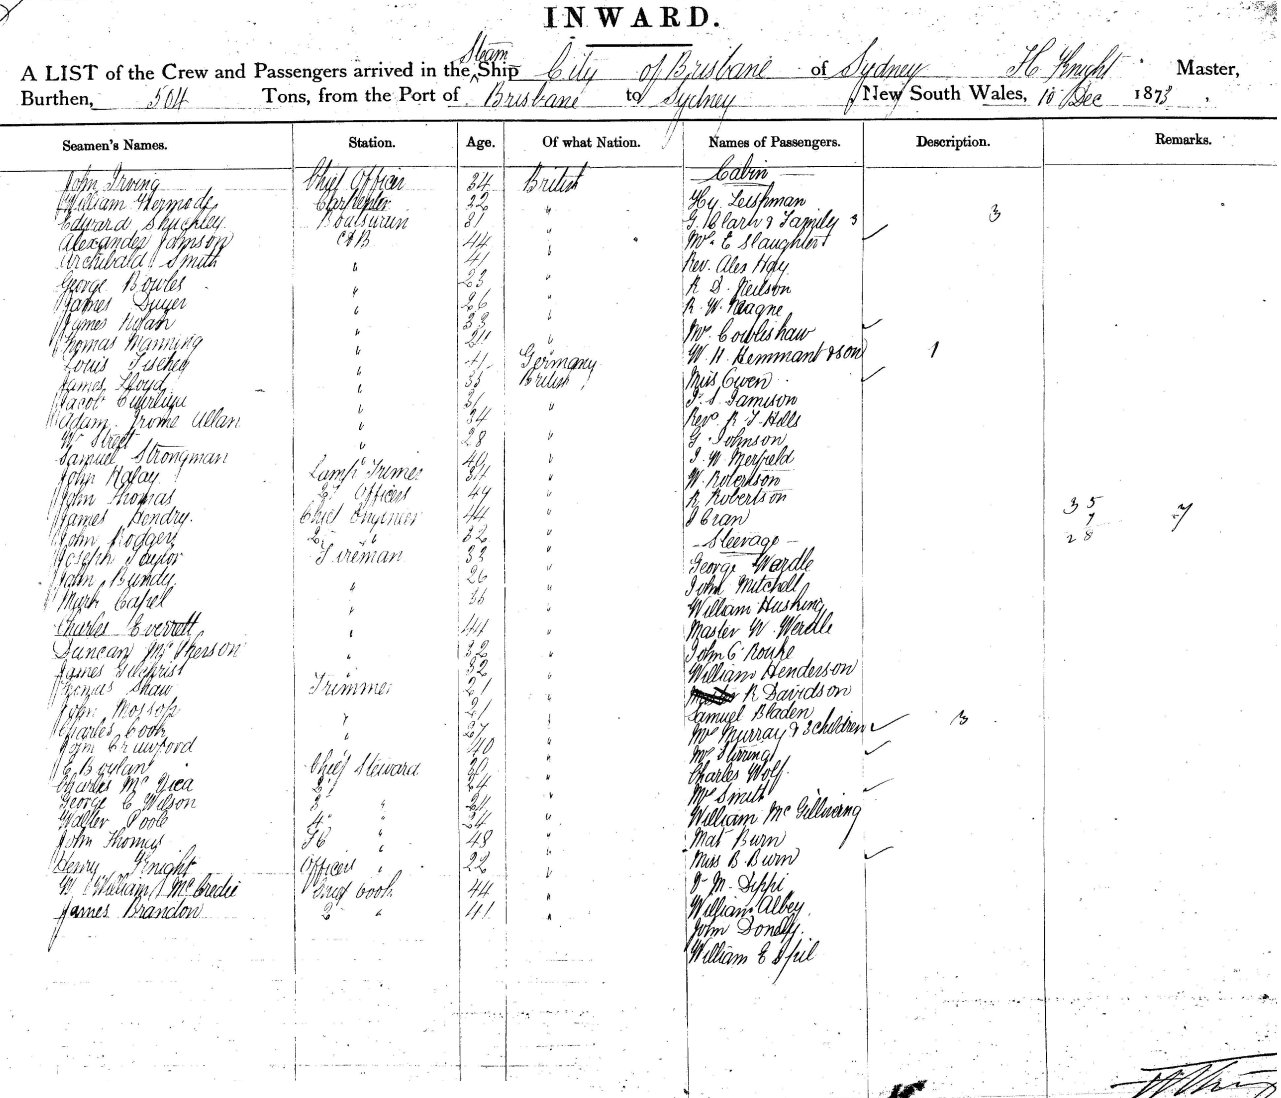 INWARD.
Steam
A LIST of the Crew and Passengers arrived in the Ship City of Brisbane of Sydney H Knight Master,
Burthen, 504 Tons, from the Port of Brisbane to Sydney New South Wales, 10 Dec 1873,
Seamen's Names. Station. Age. Of what Nation. Names of Passengers. Description. Remarks.
Cabin
John Irving Chief Officer 34 British
William Kermode Carpenter 22 " Hy. Leishman
Edward 31 " G. Clark & Family 3 3
Alexander Jamson AB 44 " Mrs. E Slaughter
Archibald Smith " 41 " Rev. Alex Hay
George Bowles " 23 " R. D. Neilson
James Dwyer " 26 " R. W.
James Ryan " 33 "
Thomas Manning " " Mrs. Cowlishaw
Louis " 41 Germany W. H. Hemmant & son 1
James Lloyd " 35 British Miss Owen
Jacob " 31 " Jamison
Adam Allan " 34 " Revd. R. T. Hills
Wm Street " 28 " G. Johnson
Samuel Strongman " 40 " J. W. Merfield
John Lamp Trimer 34 " W. Robertson
John Thomas 2 Officer 47 " R Robertson 35
James Hendry. Chief Engineer 44 " J Cran 7 7
John Rodger 2 " 32 " Steerage 28
Joseph Taylor Fireman 32 " George Wardle
John Bundy " 26 " John Mitchell
Mark Capel " 35 " William Husking
Charles Everrett " 44 " Master W. Werdle
Duncan McPherson " 32 " John O'Rourke
James Gilchrist 32 " William Henderson
Thomas Shaw Trimmer 21 " R Davidson
John Mossop 21 " Samuel Bladen
Charles Cook " 27 " Mrs Murray & 3 children 3
John Crawford " 40 " Mrs Stirring
E Boylan Chief Steward 30 " Charles Wolf
Charles 2 " 24 " Mrs Smith
George C Wilson 3 " " William
Walter Poole 4 " 24 "
John Thomas " 48 " Mat Burn
Henry Knight Officers " 22 " Miss B. Burn
W (William) McCredie Chief Cook 44 "
James Brandon 2 " 41 " William Albey
John Donelly.
William E